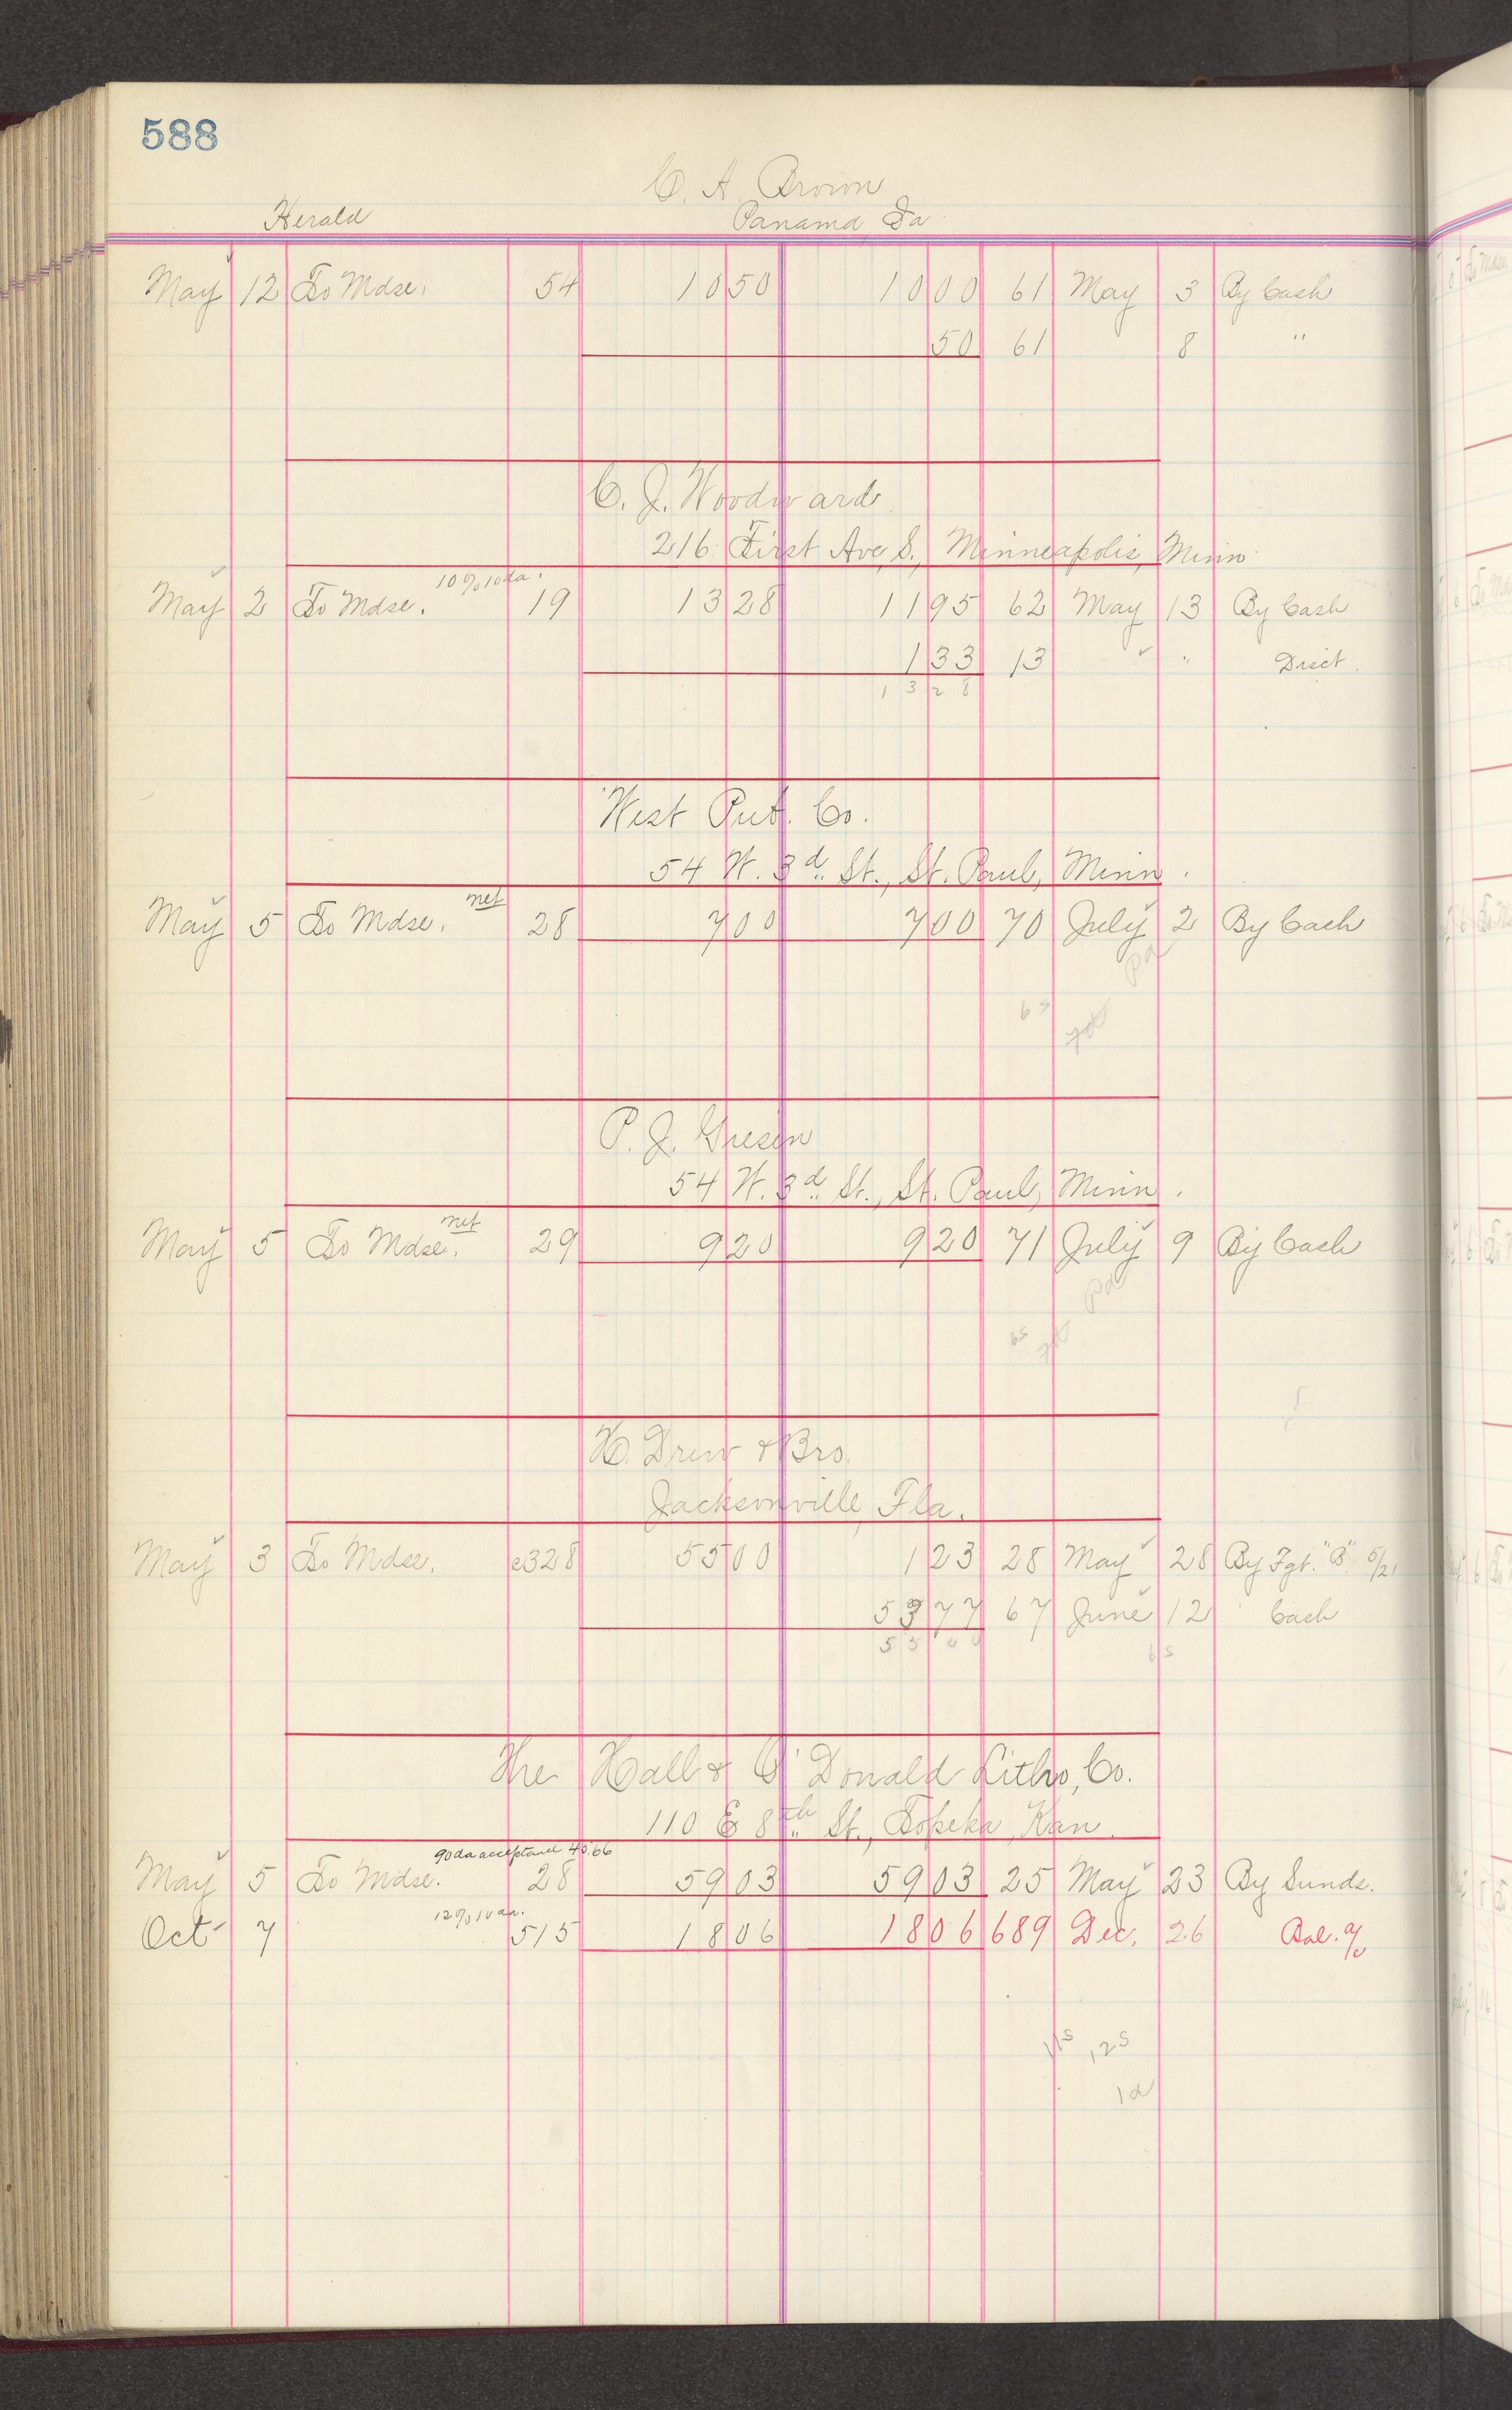 588
C. A. Brown
Herald Panama Ia
May 12 To Mdse. 54 10 50 10 00 61 May 3 By Cash
50 61 8 "
C. J. Woodward
216 First Ave S., Minneapolis, Minn.
10% 10 da.
May 2 To Mdse. 19 13 28 11 95 62 May 13 By Cash
1 33 13 " Disct.
13 28
West Pub. Co.
54 W. 3d. St., St. Paul, Minn.
net
May 5 To Mdse. 28 7 00 7 00 70 July 2 By Cash
Pd
6 S
P. J. Giesen
54 W. 3d. St., St. Paul, Minn.
net
May 5 To Mdse. 29 9 20 9 20 71 July 9 By Cash
Pd
6 S
H. Drew & Bro.
Jacksonville, Fla.
May 3 To Mdse. e328 55 00 1 23 28 May 28 By Fgt. "B" 5/21
53 77 67 June 12 Cash
55 00
6 S
The Hall & O'Donald Litho, Co.
110 E 8th. St., Topeka, Kan.
90 da acceptance 45.66
May 5 To Mdse. 28 59 03 59 03 25 May 23 By Sunds.
12% 10 da.
Oct 7 515 18 06 18 06 689 Dec. 26 Bal. a/c
11S 12S
1d